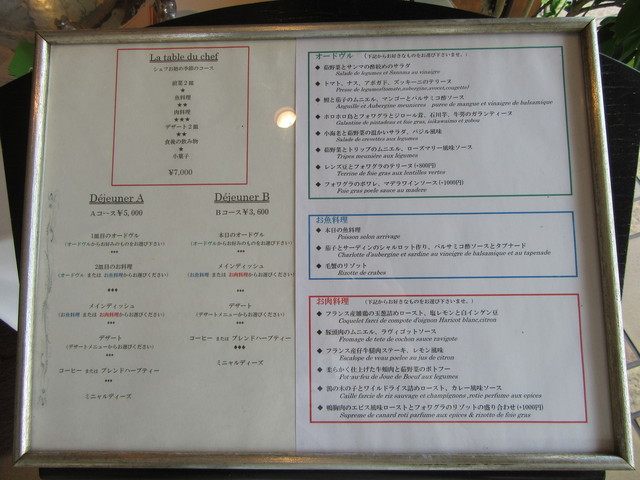 La table du chef
シェフお勧め季節のコース
前菜2皿
★
魚料理
★★
肉料理
★★★
デザート2皿
★★
食後の飲み物
★
小菓子
¥7,000
Déjeuner A
Aコース¥5,000
1皿目のオードヴル
(オードヴルからお好みのものをお選び下さい)
♦♦♦
2皿目のお料理
(オードヴル または お魚料理からお選びください)
♦♦♦
メインディッシュ
(お魚料理 または お肉料理からお選びください)
♦♦♦
デザート
(デザートメニューからお選びください)
♦♦♦
コーヒー または ブレンドハーブティー
♦♦♦
ミニャルディーズ
Déjeuner B
Bコース¥3,600
本日のオードヴル
(オードヴルからお好みのものをお選び下さい)
♦♦♦
メインディッシュ
(お魚料理 または お肉料理からお選びください)
♦♦♦
デザート
(デザートメニューからお選びください)
♦♦♦
コーヒー または ブレンドハーブティー
♦♦♦
ミニャルディーズ
オードヴル (下記からお好きなものをお選び下さいませ。)
◆ 茹野菜とサンマの酢絞めのサラダ
Salade de legumes et Sanma au vinaigre
◆ トマト、ナス、アボガド、ズッキーニのテリーヌ
◆ 鰻と茄子のムニエル、マンゴーとバルサミコ酢ソース
Anguille et Aubergine meunieres puree de mangue et vinaigre de balsamique
◆ ホロホロ鳥とフォワグラとジロール茸、石川芋、牛蒡のガランティーヌ
Galantine de pintadeau et foie gras, ishikawaimo et gobou
◆ 小海老と茹野菜の温かいサラダ、バジル風味
Salade de crevettes aux legumes
◆ 茹野菜とトリップのムニエル、ローズマリー風味ソース
Tripes meuniere aux légumes
◆ レンズ豆とフォワグラのテリーヌ(+800円)
Terrine de foie gras aux lentilles vertes
◆ フォワグラのポワレ、マデラワインソース(+1000円)
Foie gras poele sauce au madere
お魚料理
◆ 本日の魚料理
Poisson selon arrivage
◆ 茄子とサーディンのシャルロット作り、バルサミコ酢ソースとタプナード
Charlotte d'aubergine et sardine au vinaigre de balsamique et au tapenade
◆ 毛蟹のリゾット
Rizotto de crabes
お肉料理 (下記からお好きなものをお選び下さいませ。)
◆ フランス産雛鶏の玉葱詰めロースト、塩レモンと白インゲン豆
Coquelet farci de compote d'oignon Haricot blanc,citron
◆ 豚頭肉のムニエル、ラヴィゴットソース
Fromage de tete de cochon sauce ravigote
◆ フランス産仔牛腿肉ステーキ、レモン風味
Escalope de veau poelee au jus de citron
◆ 柔らかく仕上げた牛頬肉と茹野菜のポトフー
Pot au feu de Joue de Boeuf aux legumes
◆ 鶉の木の子とワイルドライス詰めロースト、カレー風味ソース
Caille farcie de riz sauvage et champignons ,rotie perfume aux epices
◆ 鴨胸肉のエピス風味ローストとフォワグラのリゾットの盛り合わせ(+1000円)
Supreme de canard roti parfume aux epices & rizotto de foie gras